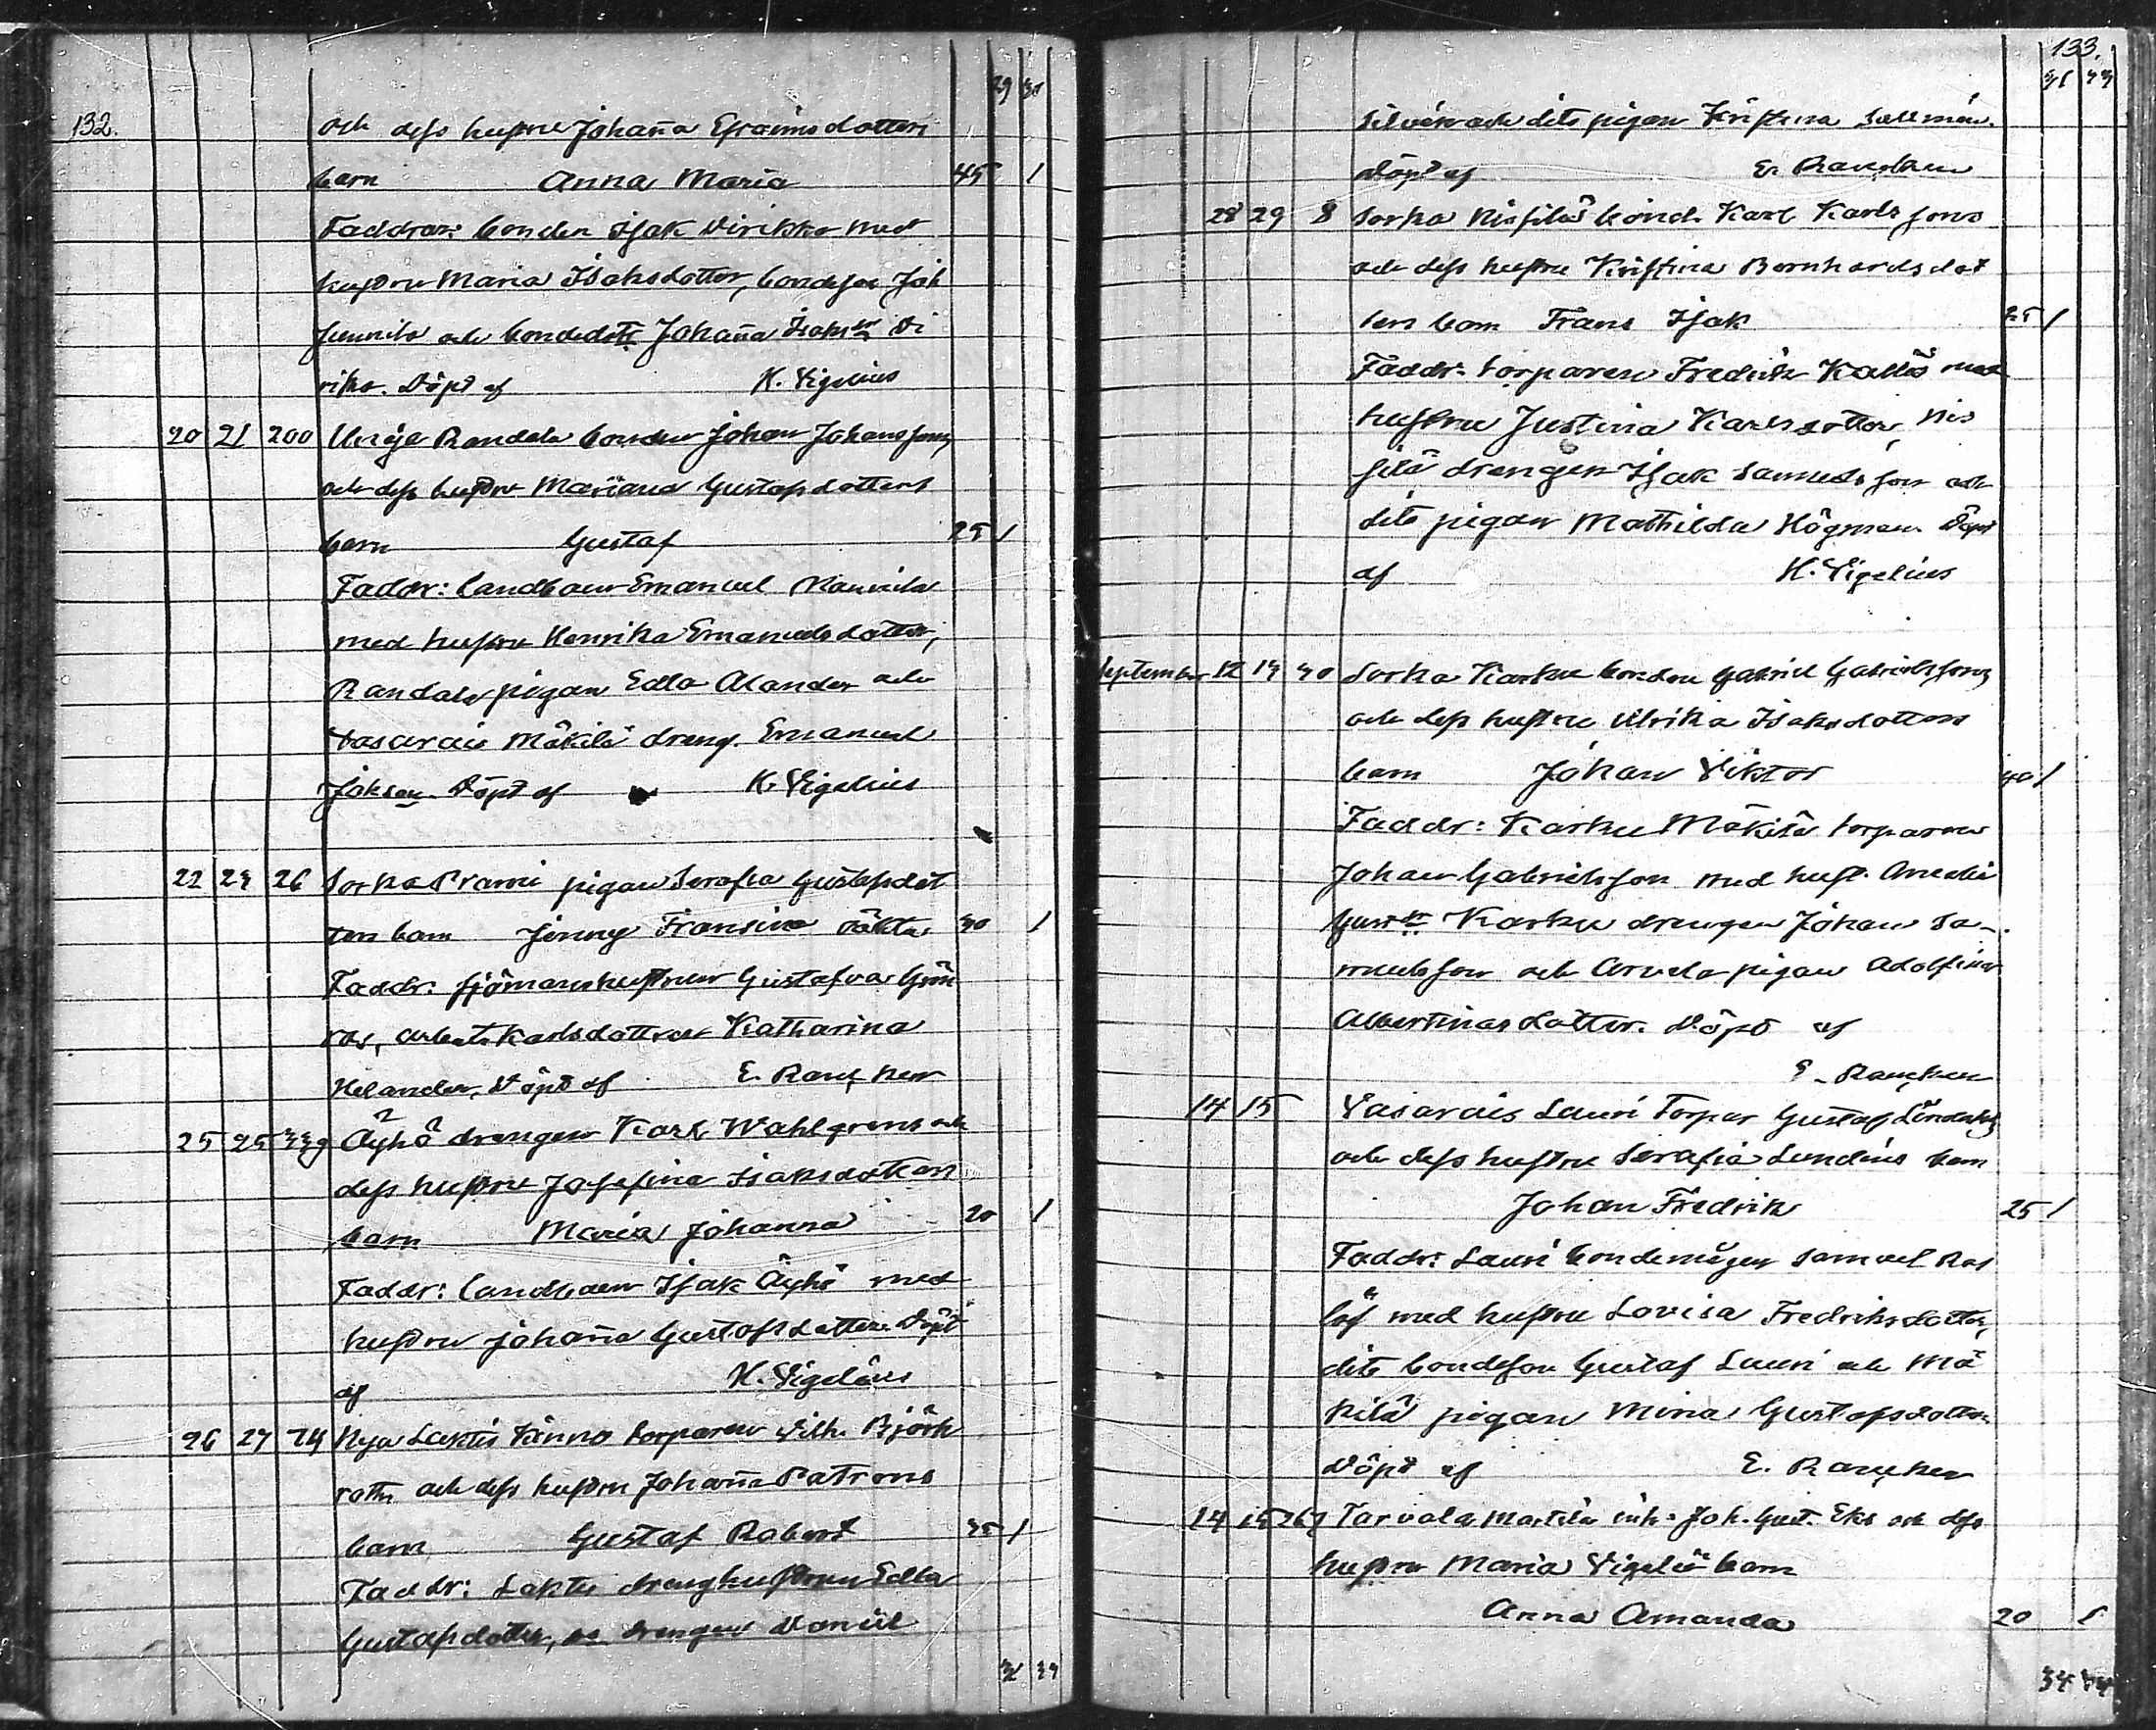 132.
och dess hustru Johanna Efraimsdotters
barn Anna Maria 45 1
Faddrar: bonden Isak Virikko med
hustru Maria Isaksdotter, bondeson Joh
och bondedott. Johanna Isaksdr Vi
rikko. Döpt af K. Vigelius
20 21 200 Randala bonden Johan Johanssons
och dess hustru Mariana Gustafsdotters
barn Gustaf 25 1
Faddr: landbonden Emanuel
med hustru Henrika Emanuelsdotter,
Randala pigan Edla Alander och
Vasarais Mäkilä dreng. Emanuel
Döpt af K. Vigelius
22 24 26 Sorka Prami pigan Serafia Gustafsdot
ters barn Jenny Fransina oäkta 30 1
Faddr. sjömanshustrun Gustafva Grön
roos, Karlsdotter Katharina
Helander. Döpt af E. Rancken
25 25 Äyhö drengen Karl Wahlgrens och
dess hustru Josefina Isaksdotters
barn Maria Johanna 20 1
Faddr: landbonden Isak Äyhö med
hustru Johanna Gustafsdotter. Döpt
af K. Vigelius
26 27 74 Nya torparen Vilh. Björk
roth och dess hustru Johanna Patrons
barn Gustaf Robert 35 1
Faddr: drenghustrun Edla
Gustafsdotter, drengen Daniel
133.
Silvén och dito pigan Kristina Sallmén.
Döpt af E. Rancken
28 29 8 Sorka Nissilä bond. Karl Karlssons
och dess hustru Kristina Bernhardsdot
ters barn Frans Isak 25 1
Faddr: torparen Fredrik Kallio med
hustru Justina Karlsdotter, Nis
silä drengen Isak Samuelsson och
dito pigan Mathilda Högman. Döpt
af K. Vigelius
September 12 14 40 Sorka Karhu bonden Gabriel Gabrielssons
och dess hustru Ulrika Isaksdotters
barn Johan Viktor 40 1
Faddr: Karhu Mäkilä torparen
Johan Gabrielsson med hust. Amalia
Gustdr Karhu drengen Johan Sa-
muelsson och Arvela pigan Adolfina
Albertinasdotter. Döpt af
E. Rancken
14 15 Vasarais Lauri Torpar Gustaf
och dess hustru Serafia Lundéns barn
Johan Fredrik 25 1
Faddr: Lauri bondemågen Samuel Ros
löf med hustru Lovisa Fredriksdotter,
dito bondeson Gustaf Lauri och Mä
kilä pigan Mina Gustafsdotter.
Döpt af E. Rancken
14 15 267 Tarvola Martila inh. Joh. Gust. Ek och dess
hustru Maria Vigelii barn
Anna Amanda 20 1